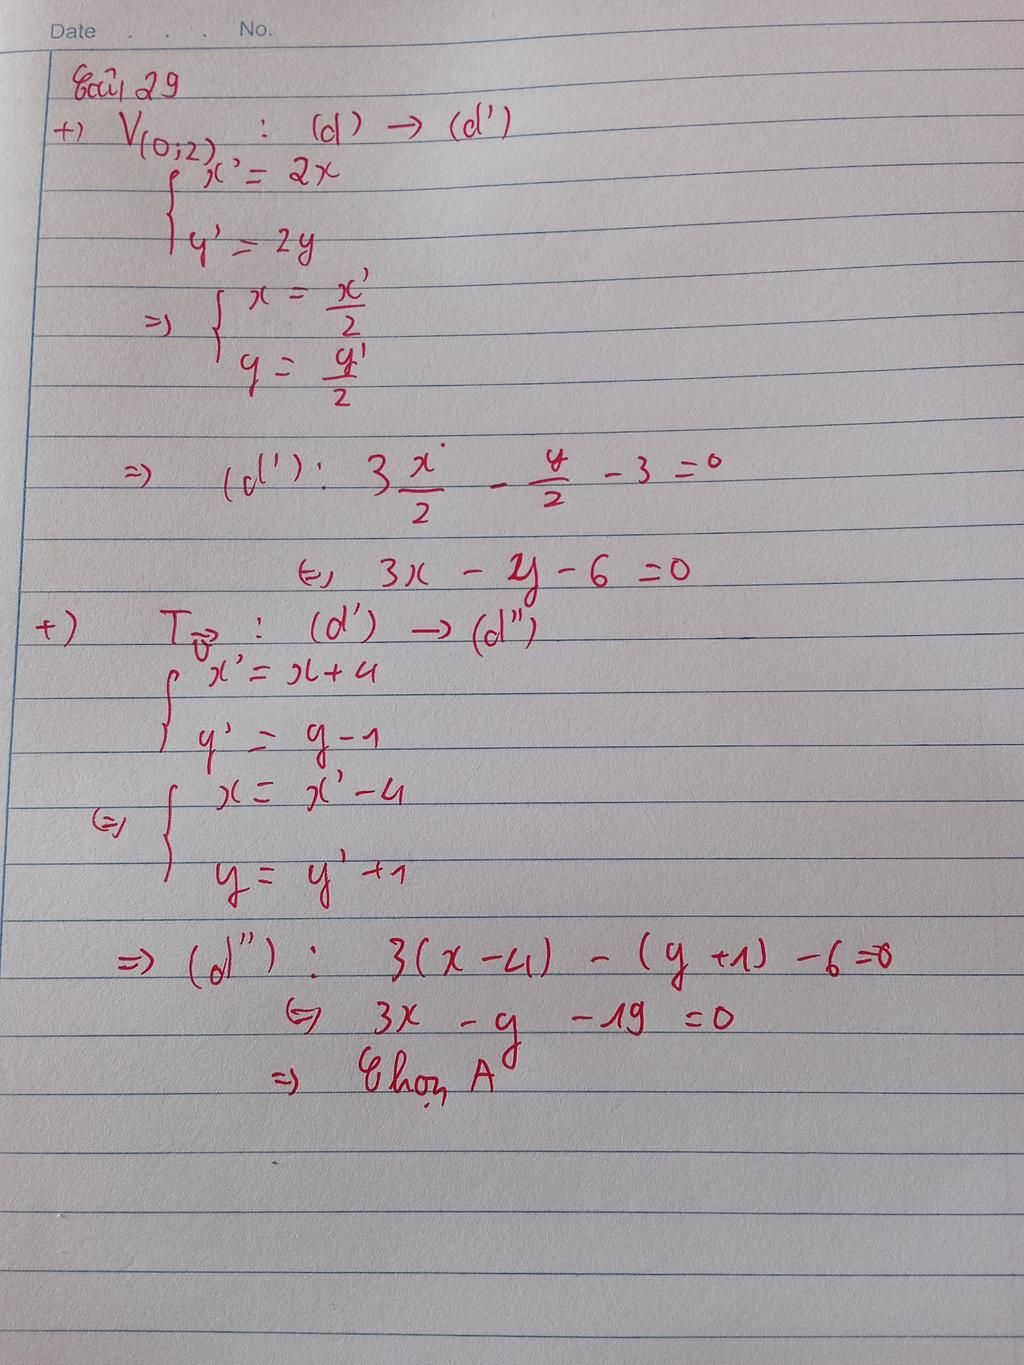 Date . . . No.
Câu 29
+) V(0;2) : (d) → (d')
{ x' = 2x
y' = 2y
=> { x = x'/2
y = y'/2
=> (d'): 3 x/2 - y/2 - 3 = 0
<=> 3x - y - 6 = 0
+) T_v⃗ : (d') → (d")
{ x' = x + 4
y' = y - 1
<=> { x = x' - 4
y = y' + 1
=> (d") : 3(x - 4) - (y + 1) - 6 = 0
<=> 3x - y - 19 = 0
=> Chọn A